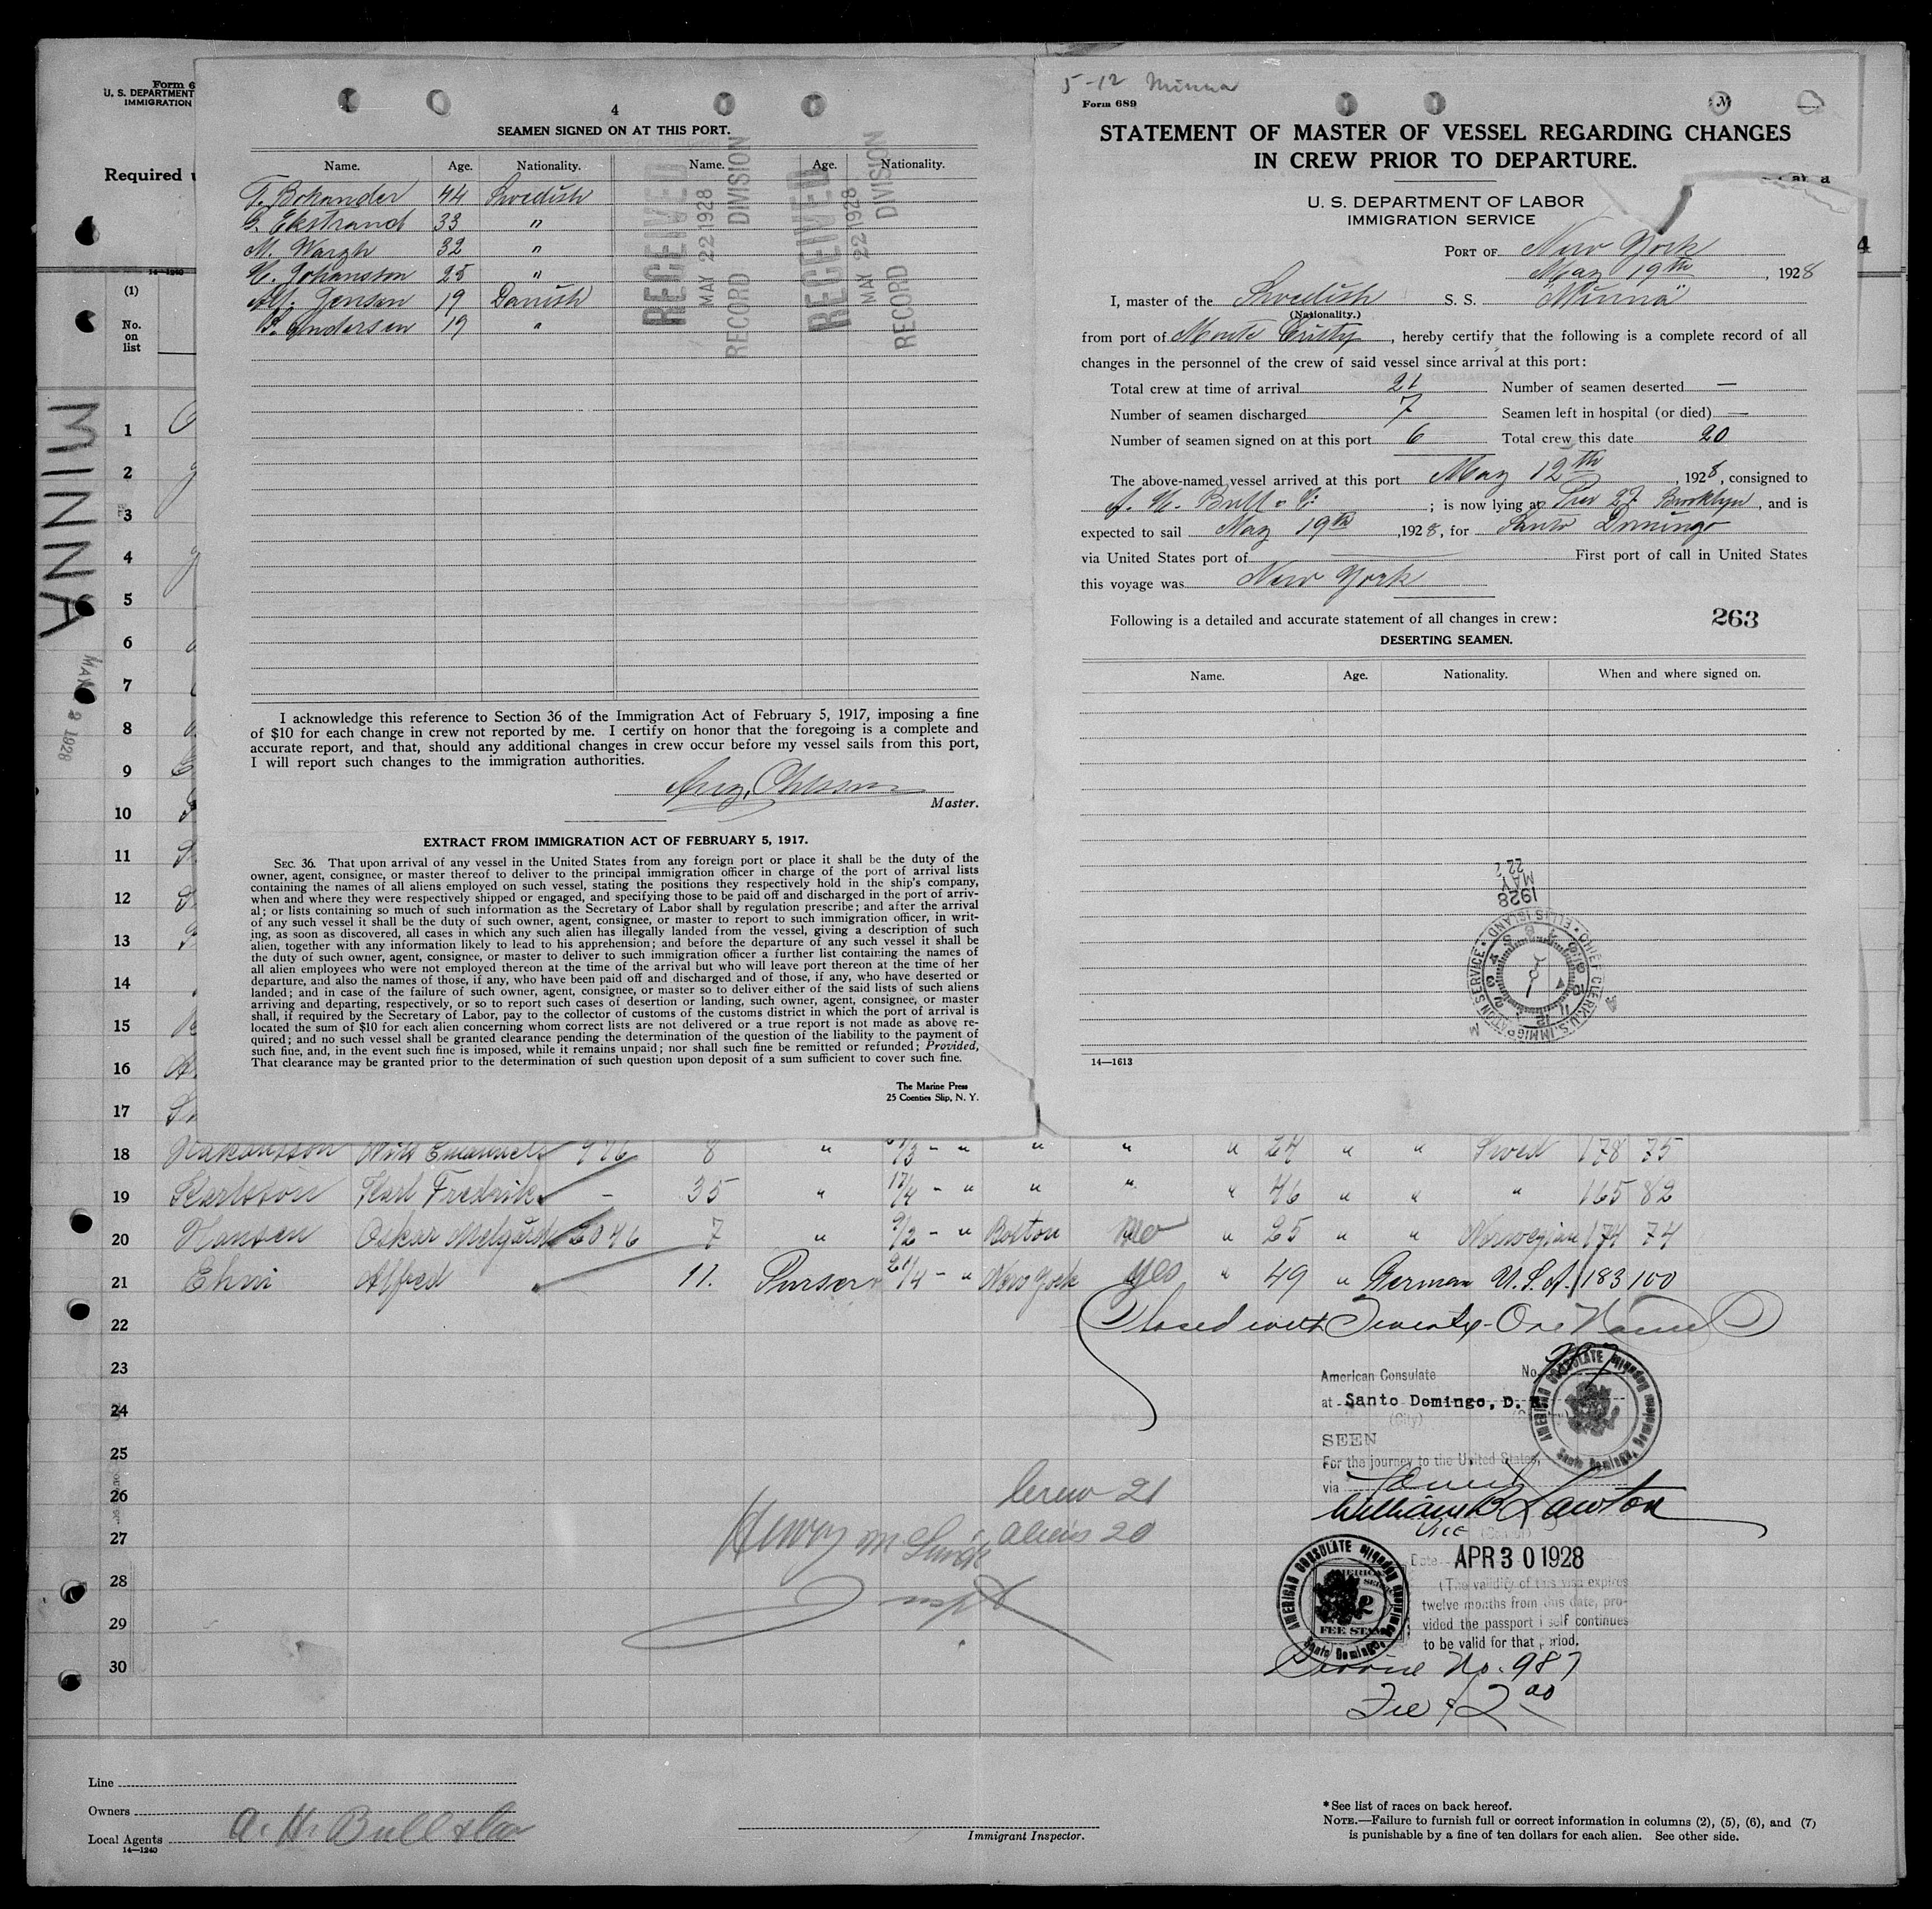 Form 6
U. S. DEPARTMENT
IMMIGRATION
Required
14—1240
(1)
No.
on
list
MINNA
1
2
3
4
5
6
7
8
9
10
11
12
13
14
15
16
17
4
SEAMEN SIGNED ON AT THIS PORT.
Name. Age. Nationality. Name. Age. Nationality.
F. Bokander 44 Swedish
G. Ekstrand 33 "
M. Wargh 32 "
C. Johansson 25 "
Alf. Jensen 19 Danish
P. Andersen 19 "
RECEIVED
MAY 22 1928
RECORD DIVISION
RECEIVED
MAY 22 1928
RECORD DIVISION
I acknowledge this reference to Section 36 of the Immigration Act of February 5, 1917, imposing a fine
of $10 for each change in crew not reported by me. I certify on honor that the foregoing is a complete and
accurate report, and that, should any additional changes in crew occur before my vessel sails from this port,
I will report such changes to the immigration authorities.
Aug. Ohlsson
Master.
EXTRACT FROM IMMIGRATION ACT OF FEBRUARY 5, 1917.
SEC. 36. That upon arrival of any vessel in the United States from any foreign port or place it shall be the duty of the
owner, agent, consignee, or master thereof to deliver to the principal immigration officer in charge of the port of arrival lists
containing the names of all aliens employed on such vessel, stating the positions they respectively hold in the ship's company,
when and where they were respectively shipped or engaged, and specifying those to be paid off and discharged in the port of arriv-
al; or lists containing so much of such information as the Secretary of Labor shall by regulation prescribe; and after the arrival
of any such vessel it shall be the duty of such owner, agent, consignee, or master to report to such immigration officer, in writ-
ing, as soon as discovered, all cases in which any such alien has illegally landed from the vessel, giving a description of such
alien, together with any information likely to lead to his apprehension; and before the departure of any such vessel it shall be
the duty of such owner, agent, consignee, or master to deliver to such immigration officer a further list containing the names of
all alien employees who were not employed thereon at the time of the arrival but who will leave port thereon at the time of her
departure, and also the names of those, if any, who have been paid off and discharged and of those, if any, who have deserted or
landed; and in case of the failure of such owner, agent, consignee, or master so to deliver either of the said lists of such aliens
arriving and departing, respectively, or so to report such cases of desertion or landing, such owner, agent, consignee, or master
shall, if required by the Secretary of Labor, pay to the collector of customs of the customs district in which the port of arrival is
located the sum of $10 for each alien concerning whom correct lists are not delivered or a true report is not made as above re-
quired; and no such vessel shall be granted clearance pending the determination of the question of the liability to the payment of
such fine, and, in the event such fine is imposed, while it remains unpaid; nor shall such fine be remitted or refunded; Provided,
That clearance may be granted prior to the determination of such question upon deposit of a sum sufficient to cover such fine.
The Marine Press
25 Coenties Slip, N. Y.
5-12 Minna
Form 689
STATEMENT OF MASTER OF VESSEL REGARDING CHANGES
IN CREW PRIOR TO DEPARTURE.
U. S. DEPARTMENT OF LABOR
IMMIGRATION SERVICE
PORT OF New York
May 19th, 1928
I, master of the Swedish S. S. "Minna"
(Nationality.)
from port of Monte Cristy, hereby certify that the following is a complete record of all
changes in the personnel of the crew of said vessel since arrival at this port:
Total crew at time of arrival 21 Number of seamen deserted —
Number of seamen discharged 7 Seamen left in hospital (or died) —
Number of seamen signed on at this port 6 Total crew this date 20
The above-named vessel arrived at this port May 12th, 1928, consigned to
A. H. Bull & C:; is now lying at Pier 27 Brooklyn, and is
expected to sail May 19th, 1928, for Santo Domingo
via United States port of First port of call in United States
this voyage was New York
Following is a detailed and accurate statement of all changes in crew:
263
DESERTING SEAMEN.
Name. Age. Nationality. When and where signed on.
MAY 22
1928
14—1613
18 Hakansson Wilh Emanuel 976 8 " " " " " 24 " " Swed 178 75
19 Karlsson Karl Fredrik - 35 " 17/4 - " " " " 46 " " " 165 82
20 Hansen Oskar Melgård 2046 7 " 9/2 - " Boston no " 25 " " Norwegian 174 74
21 Ehni Alfred 11. Purser 21/4 - " New York yes " 49 " German U.S.A. 183 100
22 Closed with Twenty-One Names
23
24
25
26
27
28
29
30
American Consulate No. 987
at Santo Domingo, D. R.
(City)
SEEN
For the journey to the United States,
via
William B Lawton
Vice
Date APR 30 1928
(The validity of this visa expires
twelve months from this date, pro-
vided the passport itself continues
to be valid for that period.
AMERICAN CONSULATE
Santo Domingo, Dominican Republic
FEE STAMP
Service No. 987
Fee $2 00
Crew 21
Aliens 20
Line
Owners
Local Agents A. H. Bull & Co
14—1240
Immigrant Inspector.
* See list of races on back hereof.
NOTE.—Failure to furnish full or correct information in columns (2), (5), (6), and (7)
is punishable by a fine of ten dollars for each alien. See other side.